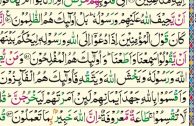 أَنْ يَحِيفَ اللّٰهُ عَلَيْهِمْ وَرَسُولُهُ بَلْ أُولٰٓئِكَ هُمُ الظَّالِمُونَ
كَانَ قَوْلَ الْمُؤْمِنِينَ إِذَا دُعُوٓا إِلَى اللّٰهِ وَرَسُولِهِ لِيَحْكُمَ بَيْنَهُمْ
أَنْ يَقُولُوا سَمِعْنَا وَأَطَعْنَا وَأُولٰٓئِكَ هُمُ الْمُفْلِحُونَ وَمَنْ
اللّٰهَ وَرَسُولَهُ وَيَخْشَ اللّٰهَ وَيَتَّقْهِ فَأُولٰٓئِكَ هُمُ الْفَآئِزُونَ
وَأَقْسَمُوا بِاللّٰهِ جَهْدَ أَيْمَانِهِمْ لَئِنْ أَمَرْتَهُمْ لَيَخْرُجُنَّ قُلْ
لَا تُقْسِمُوا طَاعَةٌ مَعْرُوفَةٌ إِنَّ اللّٰهَ خَبِيرٌ بِمَا تَعْمَلُونَ